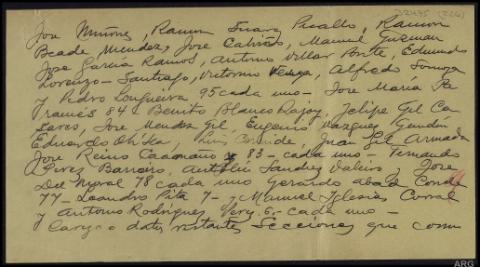 Jose Muiños, Ramon Suarez Picallo, Ramon
Beade Mendez, Jose Calviño, Manuel Guzman
Jose Garcia Ramos, Antonio Villar Ponte, Edmundo
Lorenzo - Santiago, Victorino Veiga, Alfredo Somoza
y Pedro Longueira 95 cada uno - Jose María
rames 84 Benito Blanco Rajoy, Felipe Gil Ca
sares, Jose Mendez Gil, Eugenio Vazquez Gundin
Eduardo Luis Juan Gil Armada
Jose Reino Caamaño 83 - cada uno - Fernando
Perez Barreiro, Sanchez Valeiro y Jose
Del Moral 78 cada uno Gerardo abad Conde
77 - Leandro Pita 7 - y Manuel Iglesias Corral
y Antonio Rodriguez 6 - cada uno -
datos restantes Secciones que com
ARG